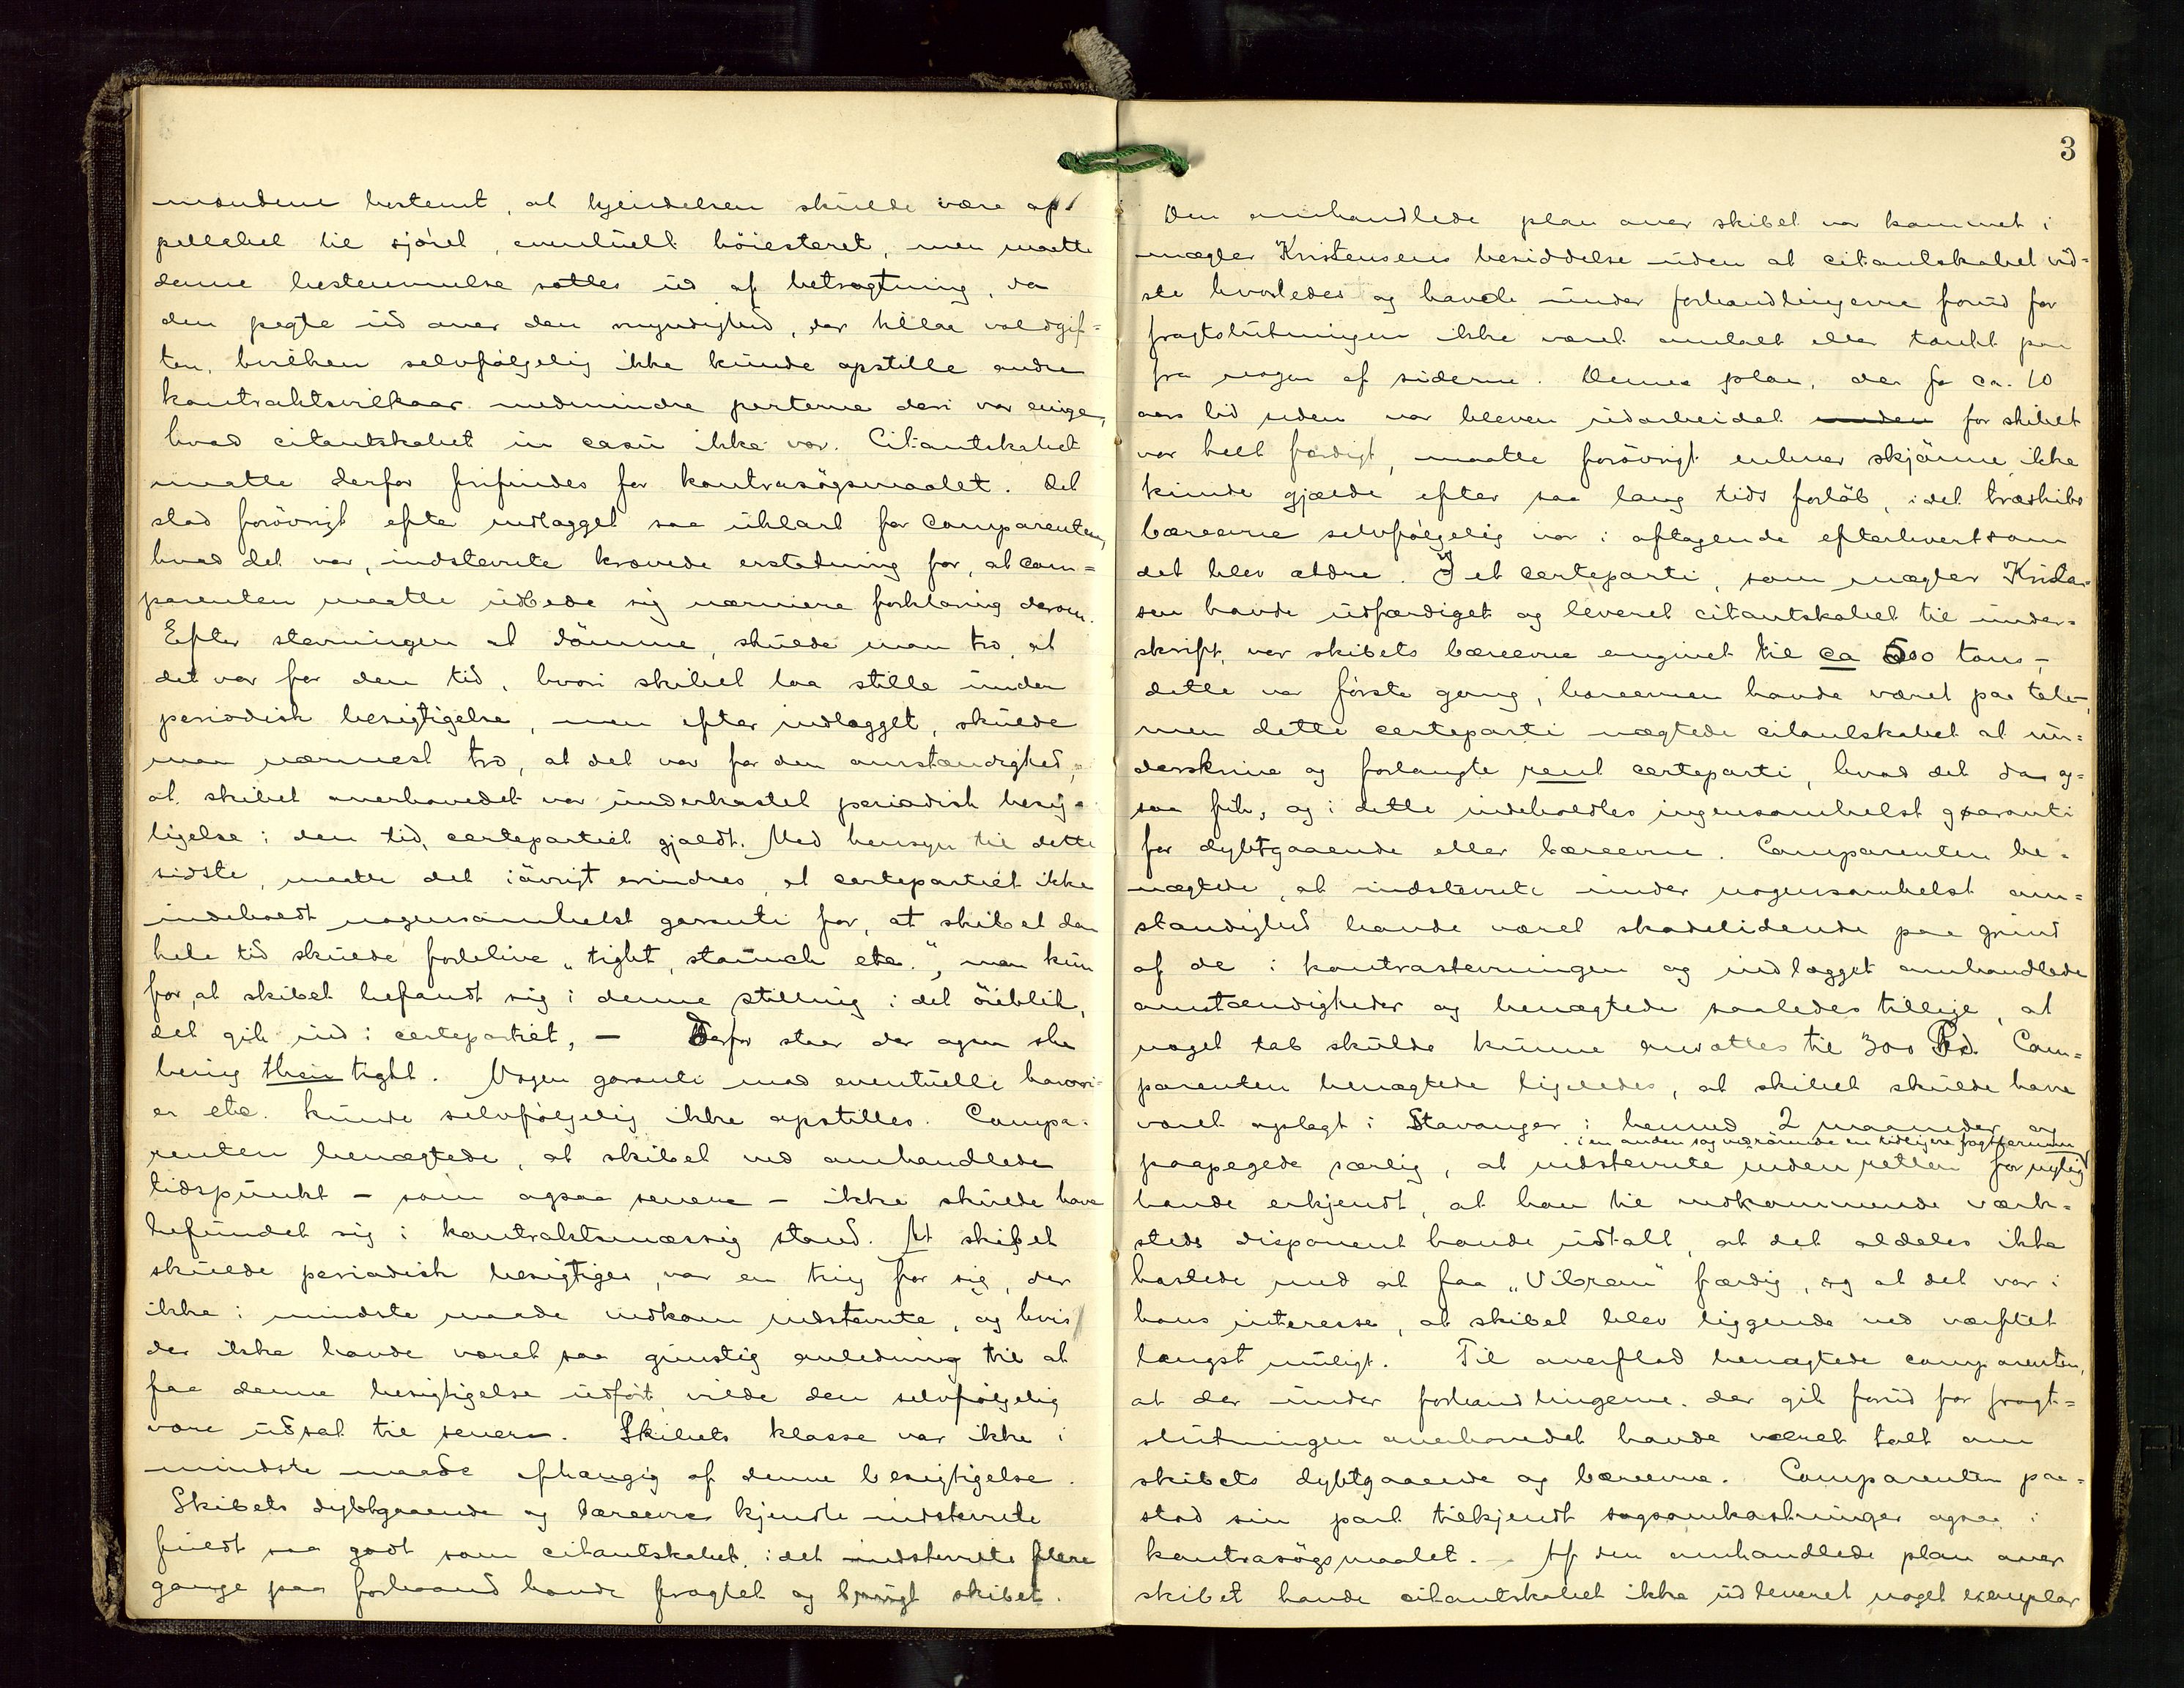 mændene bestemt, at kjendelsen skulde være ap-
pellabel til sjöret, eventuelt höiesteret, men maatte
denne bestemmelse sættes ud af betragtning, da
den pegte ud over den myndighed, der tillaa voldgif-
ten, hvilken selvfölgelig ikke kunde opstille andre
kontraktsvilkaar medmindre parterne deri var enige,
hvad citantskabet in casu ikke var. Citantskabet
maatte derfor frifindes for kontrasögsmaalet. Det
stod forövrigt efter indlægget saa uklart for comparenten,
hvad det var, indstevnte krævede erstatning for, at com-
parenten maatte udbede sig nærmere forklaring derom.
Efter stevningen at dömme, skulde man tro, at
det var for den tid, hvori skibet laa stille under
periodisk besigtigelse, men efter indlægget, skulde
man nærmest tro, at det var for den omstændighed,
at skibet overhovedet var underkastet periodisk besig-
tigelse i den tid, certepartiet gjaldt. Med hensyn til dette
sidste, maatte det iövrigt erindres, at certepartiet ikke
indeholdt nogensomhelst garanti for, at skibet den
hele tid skulde forblive "tight, staunch etc.", men kun
for, at skibet befandt sig i denne stilling i det öieblik,
det gik ind i certepartiet, — Derfor staar der ogsaa she
being then tight. Nogen garanti mod eventuelle havari-
er etc. kunde selvfölgelig ikke opstilles. Compa-
renten benægtede, at skibet ved omhandlede
tidspunkt – som ogsaa senere – ikke skulde have
befundet sig i kontraktsmæssig stand. At skibet
skulde periodisk besigtiges, var en ting for sig, der
ikke i mindste maade vedkom indstevnte, og hvis
der ikke havde været saa gunstig anledning til at
faa denne besigtigelse udfört vilde den selvfölgelig
være udsat til senere. Skibets klasse var ikke i
mindste maade afhængig af denne besigtigelse.
Skibets dybtgaaende og bæreevne kjendte indstevnte
fuldt saa godt som citantskabet, idet indstevnte flere
gange paa forhaand havde fragtet og brugt skibet.
3
Den omhandlede plan over skibet var kommet i
mægler Kristensens besiddelse uden at citantskabet vid-
ste hvorledes og havde under forhandlingerne forud for
fragtslutningen ikke været omtalt eller tænkt paa
fra nogen af siderne. Denne plan, der for ca. 10
aars tid siden var bleven udarbeidet for skibet
var helt færdigt, maatte forövrigt enhver skjönne ikke
kunde gjælde efter saa lang tids forlöb, idet træskibs
bæreevne selvfölgelig var i aftagende efterhvert som
det blev ældre. I et certeparti, som mægler Kristen-
sen havde udfærdiget og leveret citantskabet til under-
skrift, var skibets bæreevne angivet til ca 500 tons –
dette var förste gang, bæreevnen havde været paa tale –,
men dette certeparti nægtede citantskabet at un-
derskrive og forlangte rent certeparti, hvad det da og-
saa fik, og i dette indeholdtes ingensomhelst garanti
for dybtgaaende eller bæreevne. Comparenten be-
nægtede, at indstevnte under nogensomhelst om-
stændighed havde været skadelidende paa grund
af de i kontrastevningen og indlægget omhandlede
omstændigheder og benægtede saaledes tillige, at
noget tab skulde kunne ansættes til 300 Pd. Com-
parenten benægtede ligeledes, at skibet skulde have
været oplagt i Stavanger i henved 2 maaneder og
i en anden sag vedrörende en tidligere fragttermin
paapegede særlig, at indstevnte inden retten for nylig
havde erkjendt, at han til vedkommende værk-
steds disponent havde udtalt, at det aldeles ikke
hastede med at faa "Vibran" færdig, og at det var i
hans interesse, at skibet blev liggende ved værftet
længst muligt. Til overflod benægtede comparenten,
at der under forhandlingerne, der gik forud for fragt-
slutningen overhovedet havde været talt om
skibets dybtgaaende og bæreevne. Comparenten paa-
stod sin part tilkjendt sagsomkostninger ogsaa i
kontrasögsmaalet. – Af den omhandlede plan over
skibet havde citantskabet ikke udleveret noget exemplar